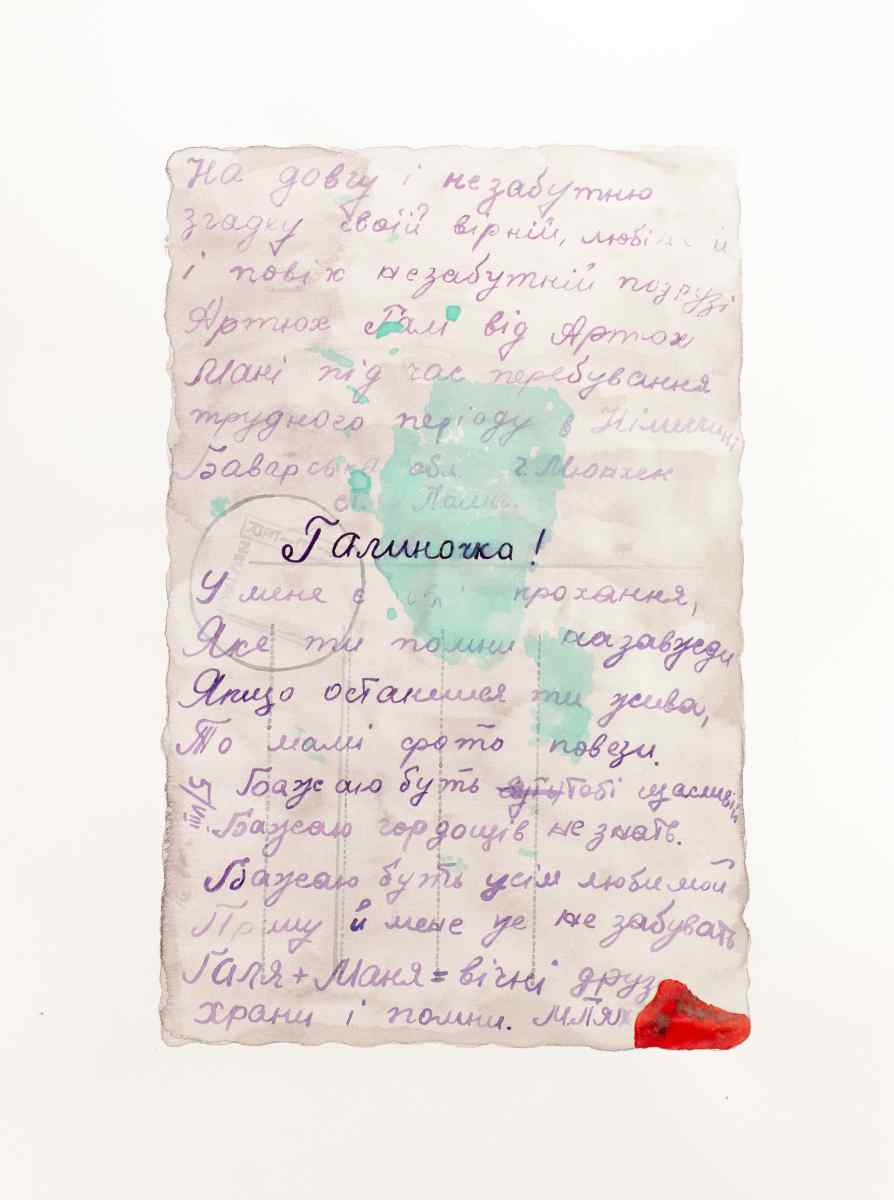 На довгу і незабутню
згадку своїй вірній,
і повік незабутній подрузі
Артюх Галі від Артюх
Мані під час перебування
трудного періоду в Німеччині
обл. г. Мюнхен
Галиночка!
У мене є прохання,
Яке ти помни назавжди
Якщо останешся ти жива,
То мамі фото повези.
Бажаю буть Тобі щасливій
5/VIII
Бажаю гордощів не знать.
Бажаю буть усім любимой
Прошу й мене це не забувать
Галя + Маня = вічні
храни і помни.